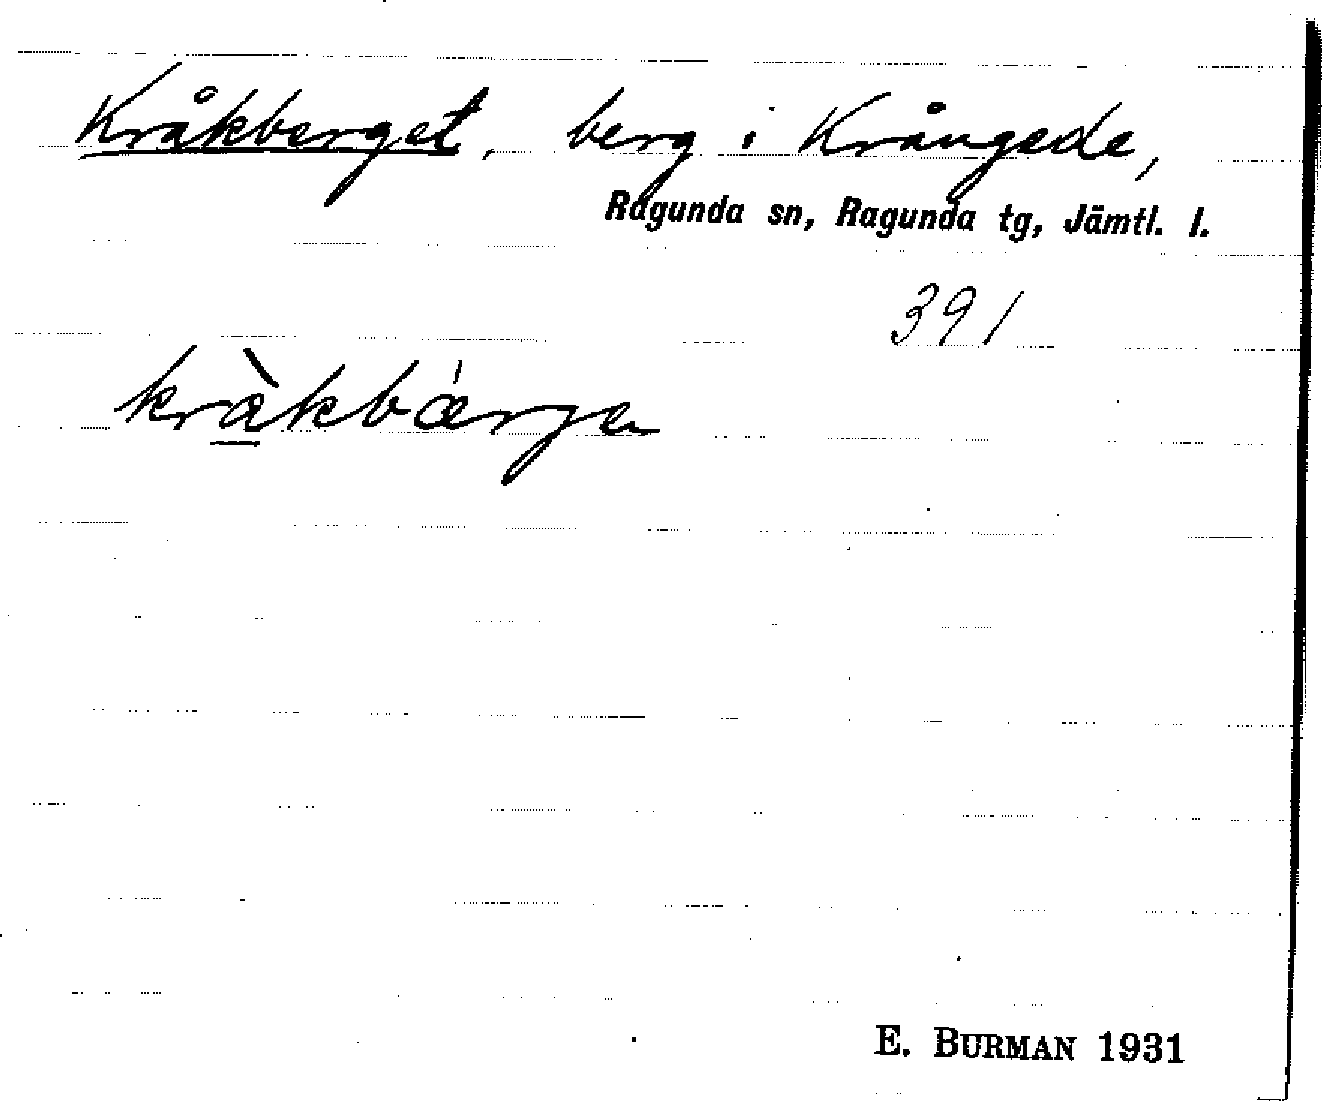 Kråkberget, berg i Krångede,
Ragunda sn, Ragunda tg, Jämtl. l.
391
kràkbárjen
E. BURMAN 1931